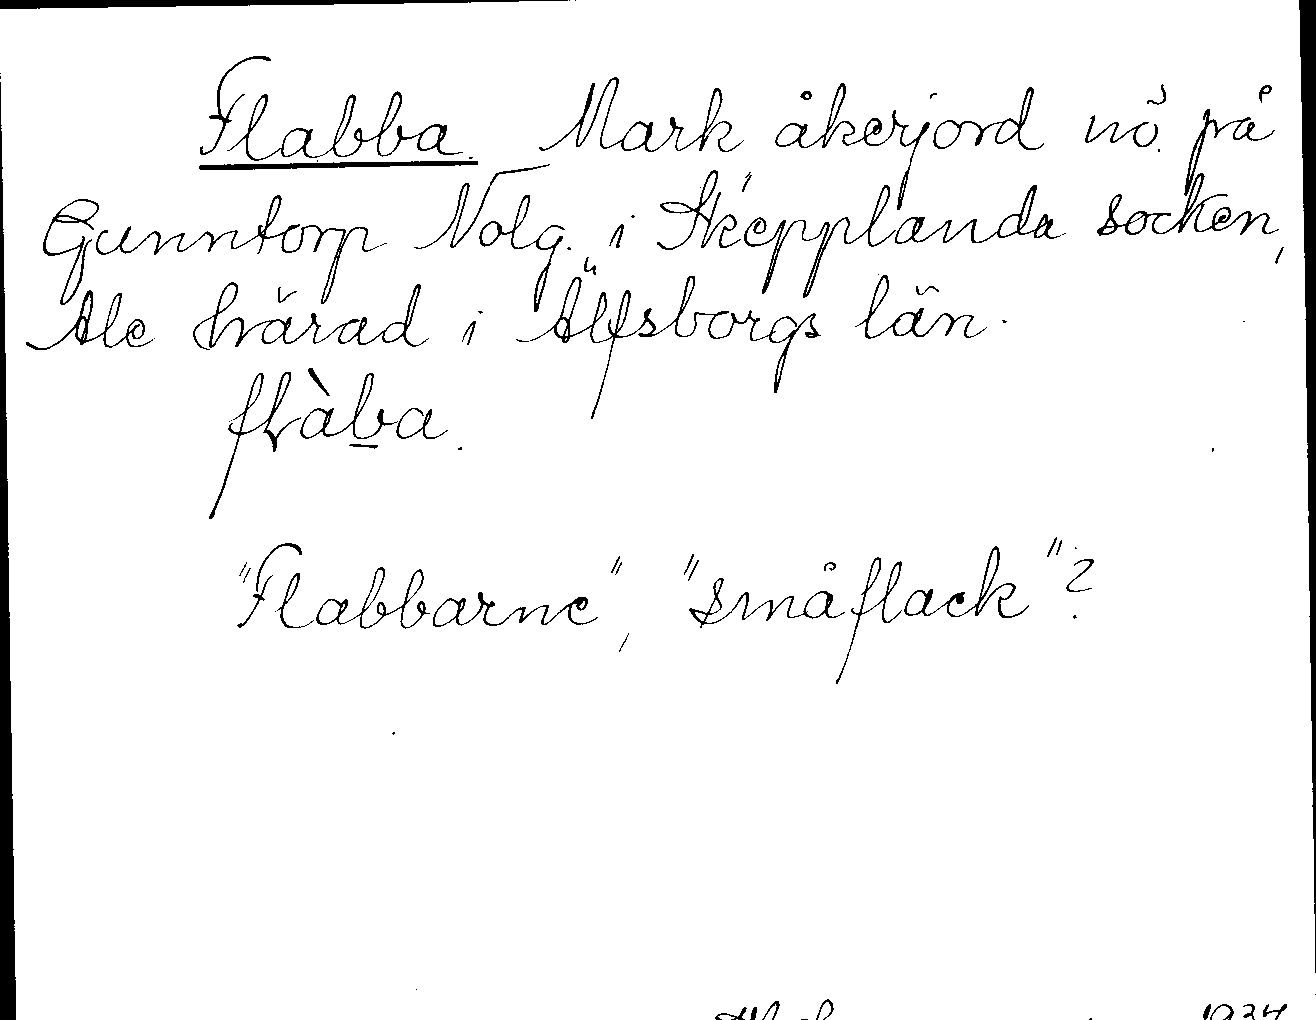 Flabba. Mark åkerjord nö. på
Gunntorp Nolg. i Skepplanda socken,
Ale härad i Älfsborgs län.
flàba.
"Flabbarne", "småflack"?
1934